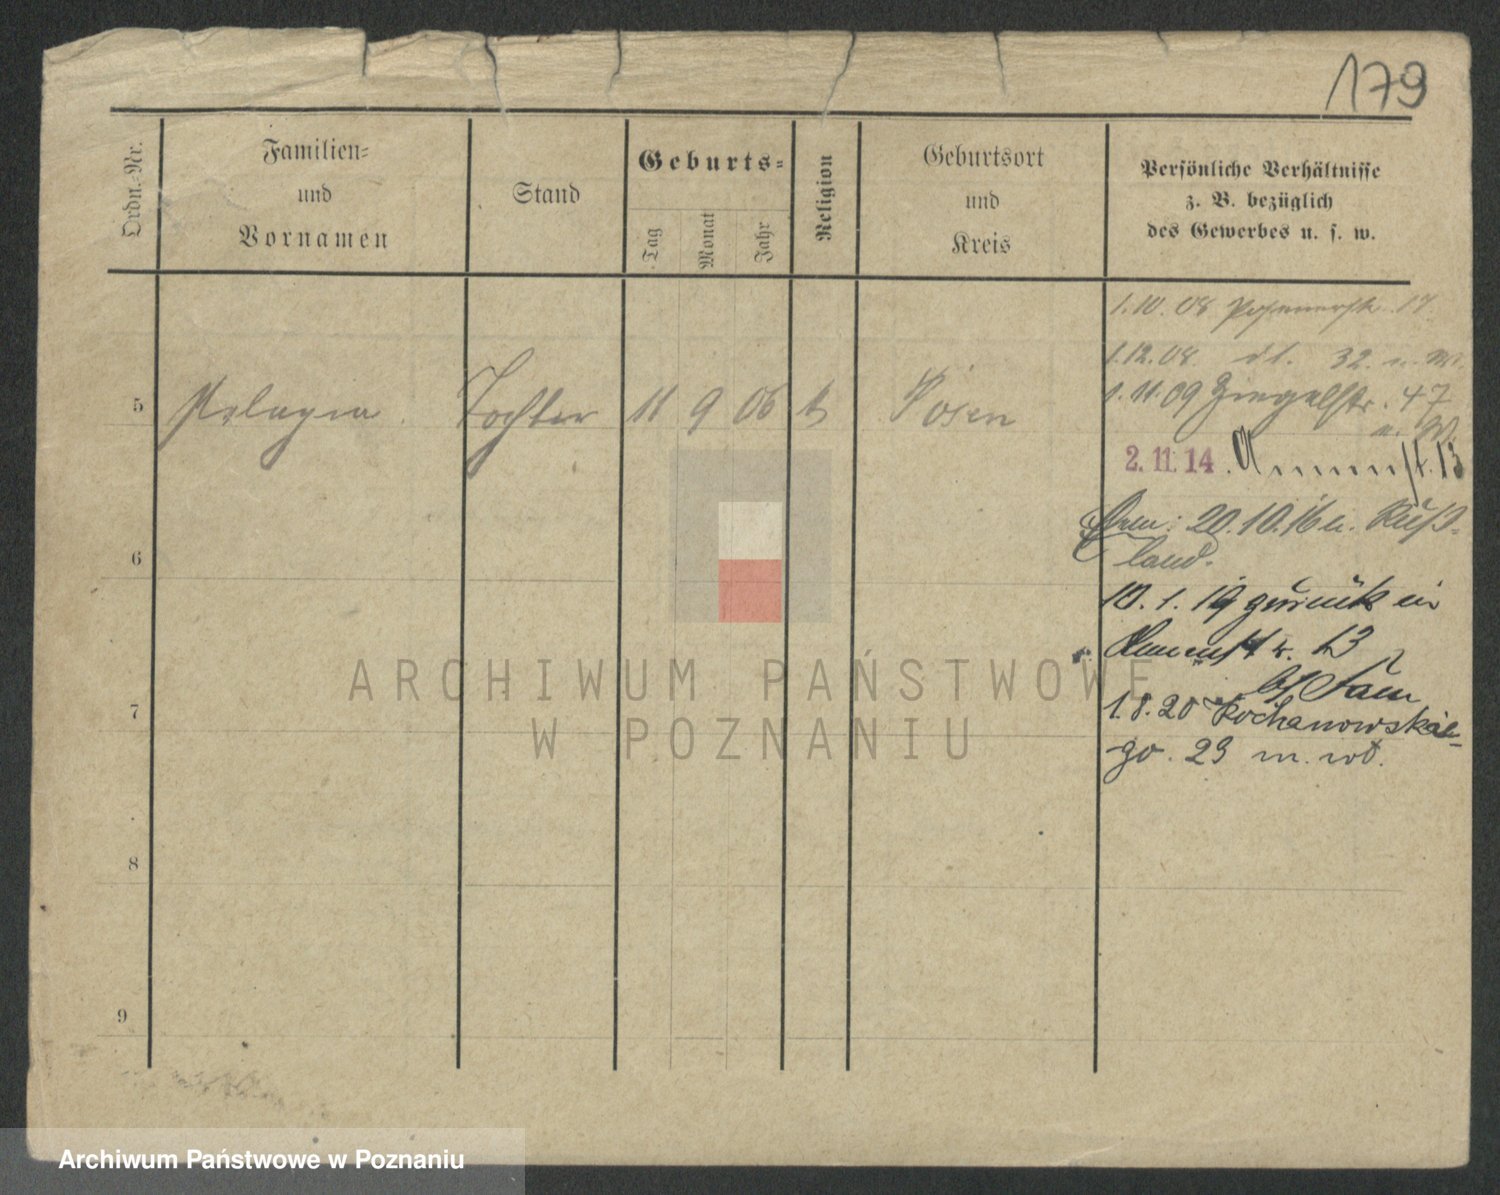 179
Ordn.-Nr.
Familien-
und
Vornamen
Stand
Geburts-
Tag
Monat
Jahr
Religion
Geburtsort
und
Kreis
Persönliche Verhältnisse
z. B. bezüglich
des Gewerbes u. s. w.
1.10.08 Posenerstr. 17
1.12.08 32.
5 Pelagia Tochter 11 9 06 k Posen
1.11.09 Ziegelstr. 47
u. W.
2.11.14. st. 13
20.10.16 n. Ruß-
land.
6
10.1.19 zurück in
13
7
1.8.20 Kochanowskie-
go. 23 m.
8
9
ARCHIWUM PAŃSTWOWE
W POZNANIU
Archiwum Państwowe w Poznaniu